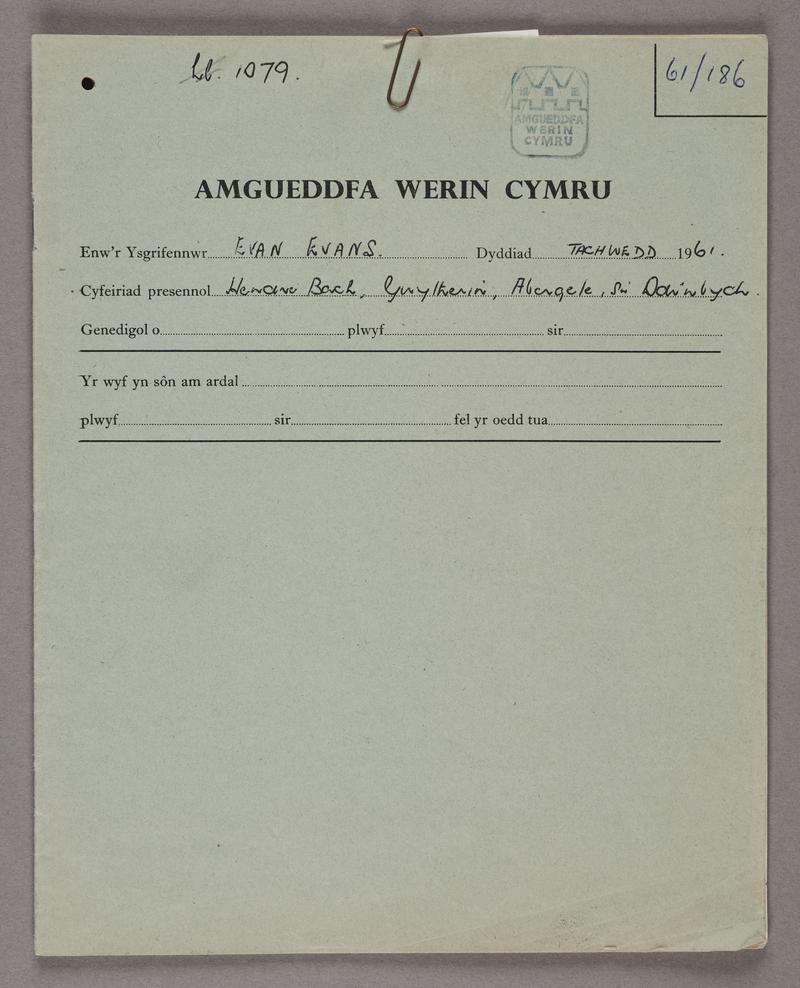 Lb. 1079.
61/186
AMGUEDDFA
WERIN
CYMRU
AMGUEDDFA WERIN CYMRU
Enw'r Ysgrifennwr EVAN EVANS. Dyddiad TACHWEDD 1961.
Cyfeiriad presennol Bach, Gwytherin, Abergele, Sir Ddinbych.
Genedigol o plwyf sir
Yr wyf yn sôn am ardal
plwyf sir fel yr oedd tua